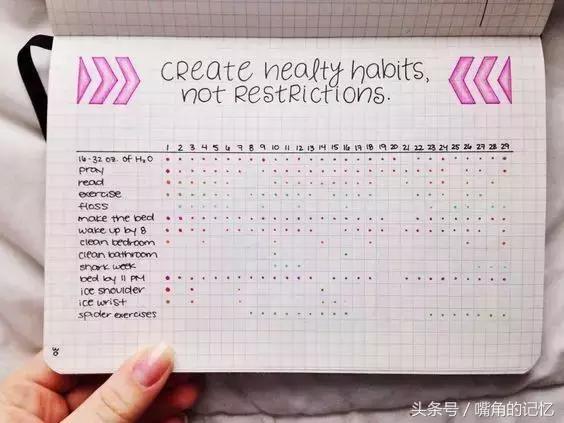 CREATE HEALTY HABITS,
NOT RESTRICTIONS.
1 2 3 4 5 6 7 8 9 10 11 12 13 14 15 16 17 18 19 20 21 22 23 24 25 26 27 28 29
16-32 oz. of H₂O
pray
read
exercise
floss
make the bed
wake up by 8
clean bedroom
clean bathroom
shark week
bed by 11 PM
ice shoulder
ice wrist
spider exercises
30
头条号 / 嘴角的记忆